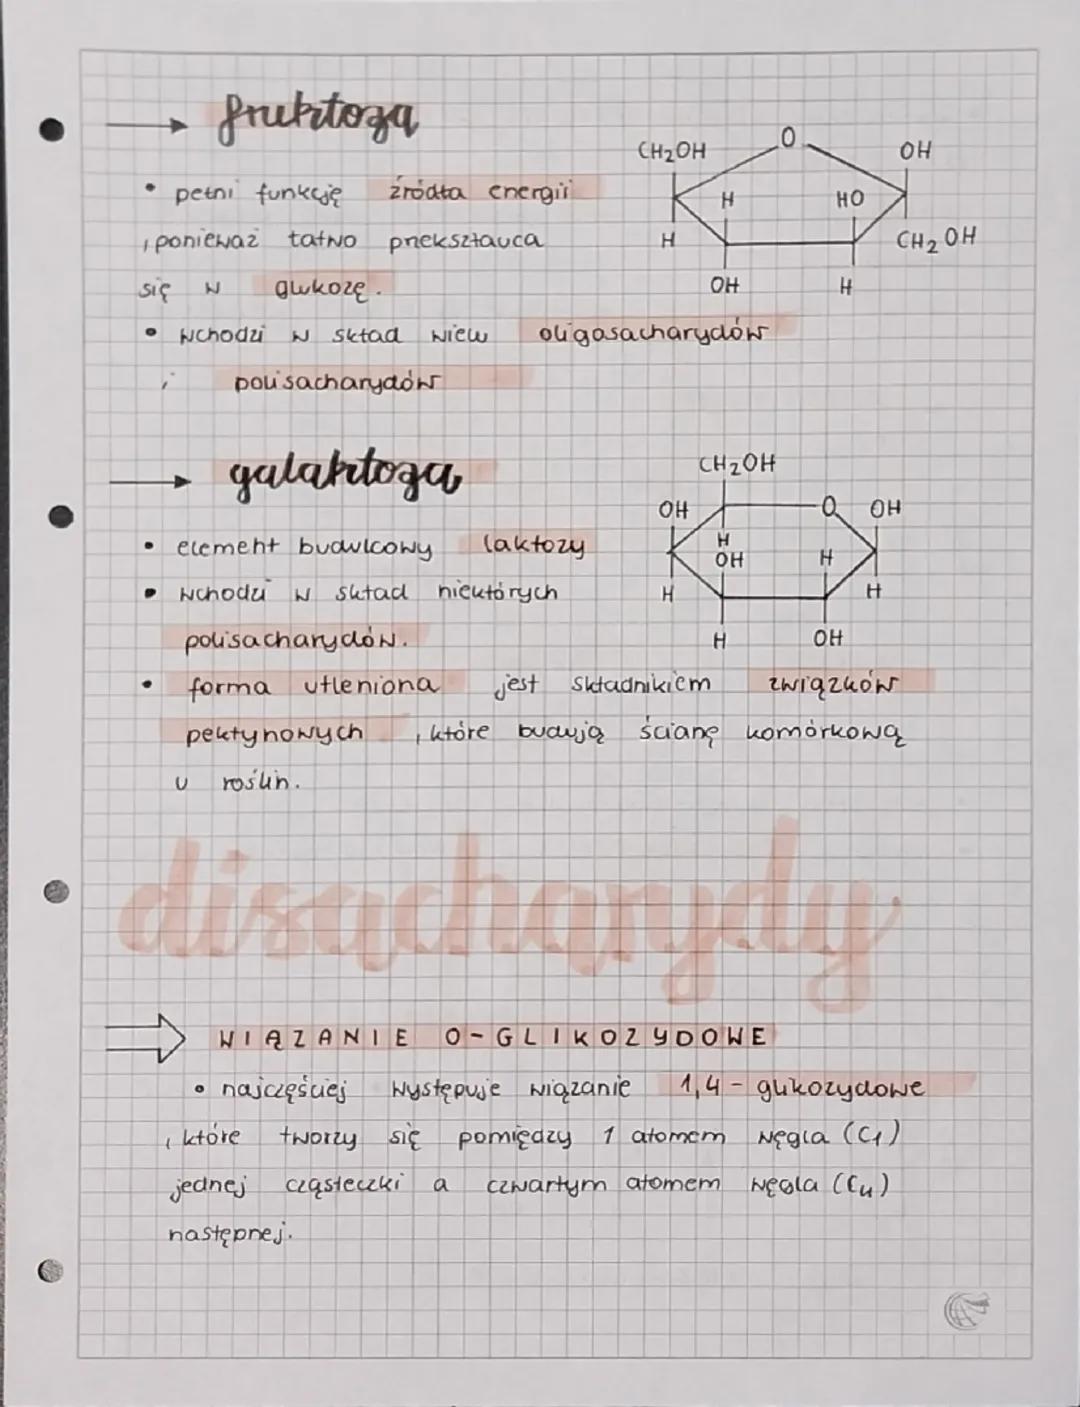 → fruktoza
CH₂OH O OH
• pełni funkcję źródła energii
H HO
, ponieważ łatwo przekształca
H CH₂OH
się w glukozę.
OH H
• wchodzi w skład wielu oligosacharydów
i polisacharydów
→ galaktoza
CH₂OH
OH O OH
• element budulcowy laktozy
H
OH H
• wchodzi w skład niektórych
H H
polisacharydów.
H OH
• forma utleniona jest składnikiem związków
pektynowych , które budują ścianę komórkową
u roślin.
disacharydy
⇒ WIĄZANIE O-GLIKOZYDOWE
• najczęściej występuje wiązanie 1,4 - glikozydowe
, które tworzy się pomiędzy 1 atomem węgla (C₁)
jednej cząsteczki a czwartym atomem węgla (C₄)
następnej.